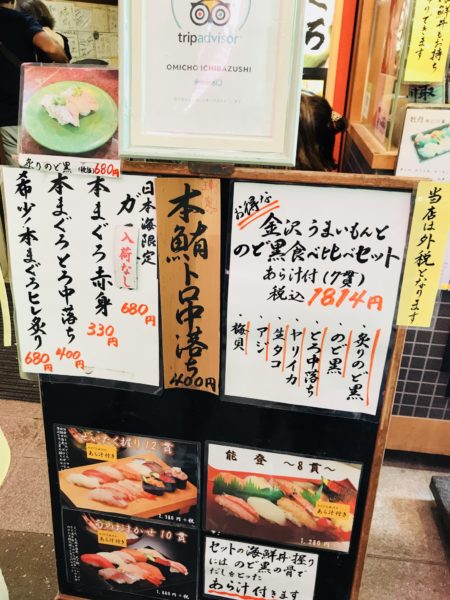 tripadvisor
OMICHO ICHIBAZUSHI
炙りのど黒 (税抜) 680円
日本海限定
ガ
入荷なし
680円
本まぐろ赤身
330円
本まぐろとろ中落ち
400円
希少!本まぐろヒレ炙り
680円
本鮪トロ中落ち
400円
お得な
金沢うまいもんと
のど黒食べ比べセット
あら汁付(7貫)
税込1814円
・炙りのど黒
・のど黒
・とろ中落ち
・ヤリイカ
・生タコ
・アジ
・梅貝
当店は外税となります
海鮮丼もお持ち
りできます
牡丹
握り12貫
あら汁付き
1,980円+税
旬のおまかせ10貫
あら汁付き
能登 〜8貫〜
あら汁付き
1,280円+税
セットの海鮮丼・握り
にはのど黒の骨で
だしをとった
あら汁付きます